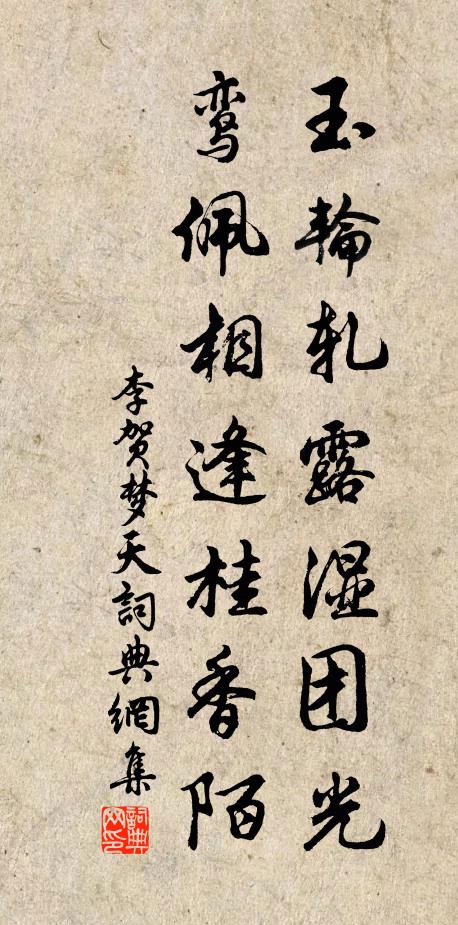 玉輪軋露湿团光
鸾佩相逢桂香陌
李贺梦天詞典網集
詞典网印